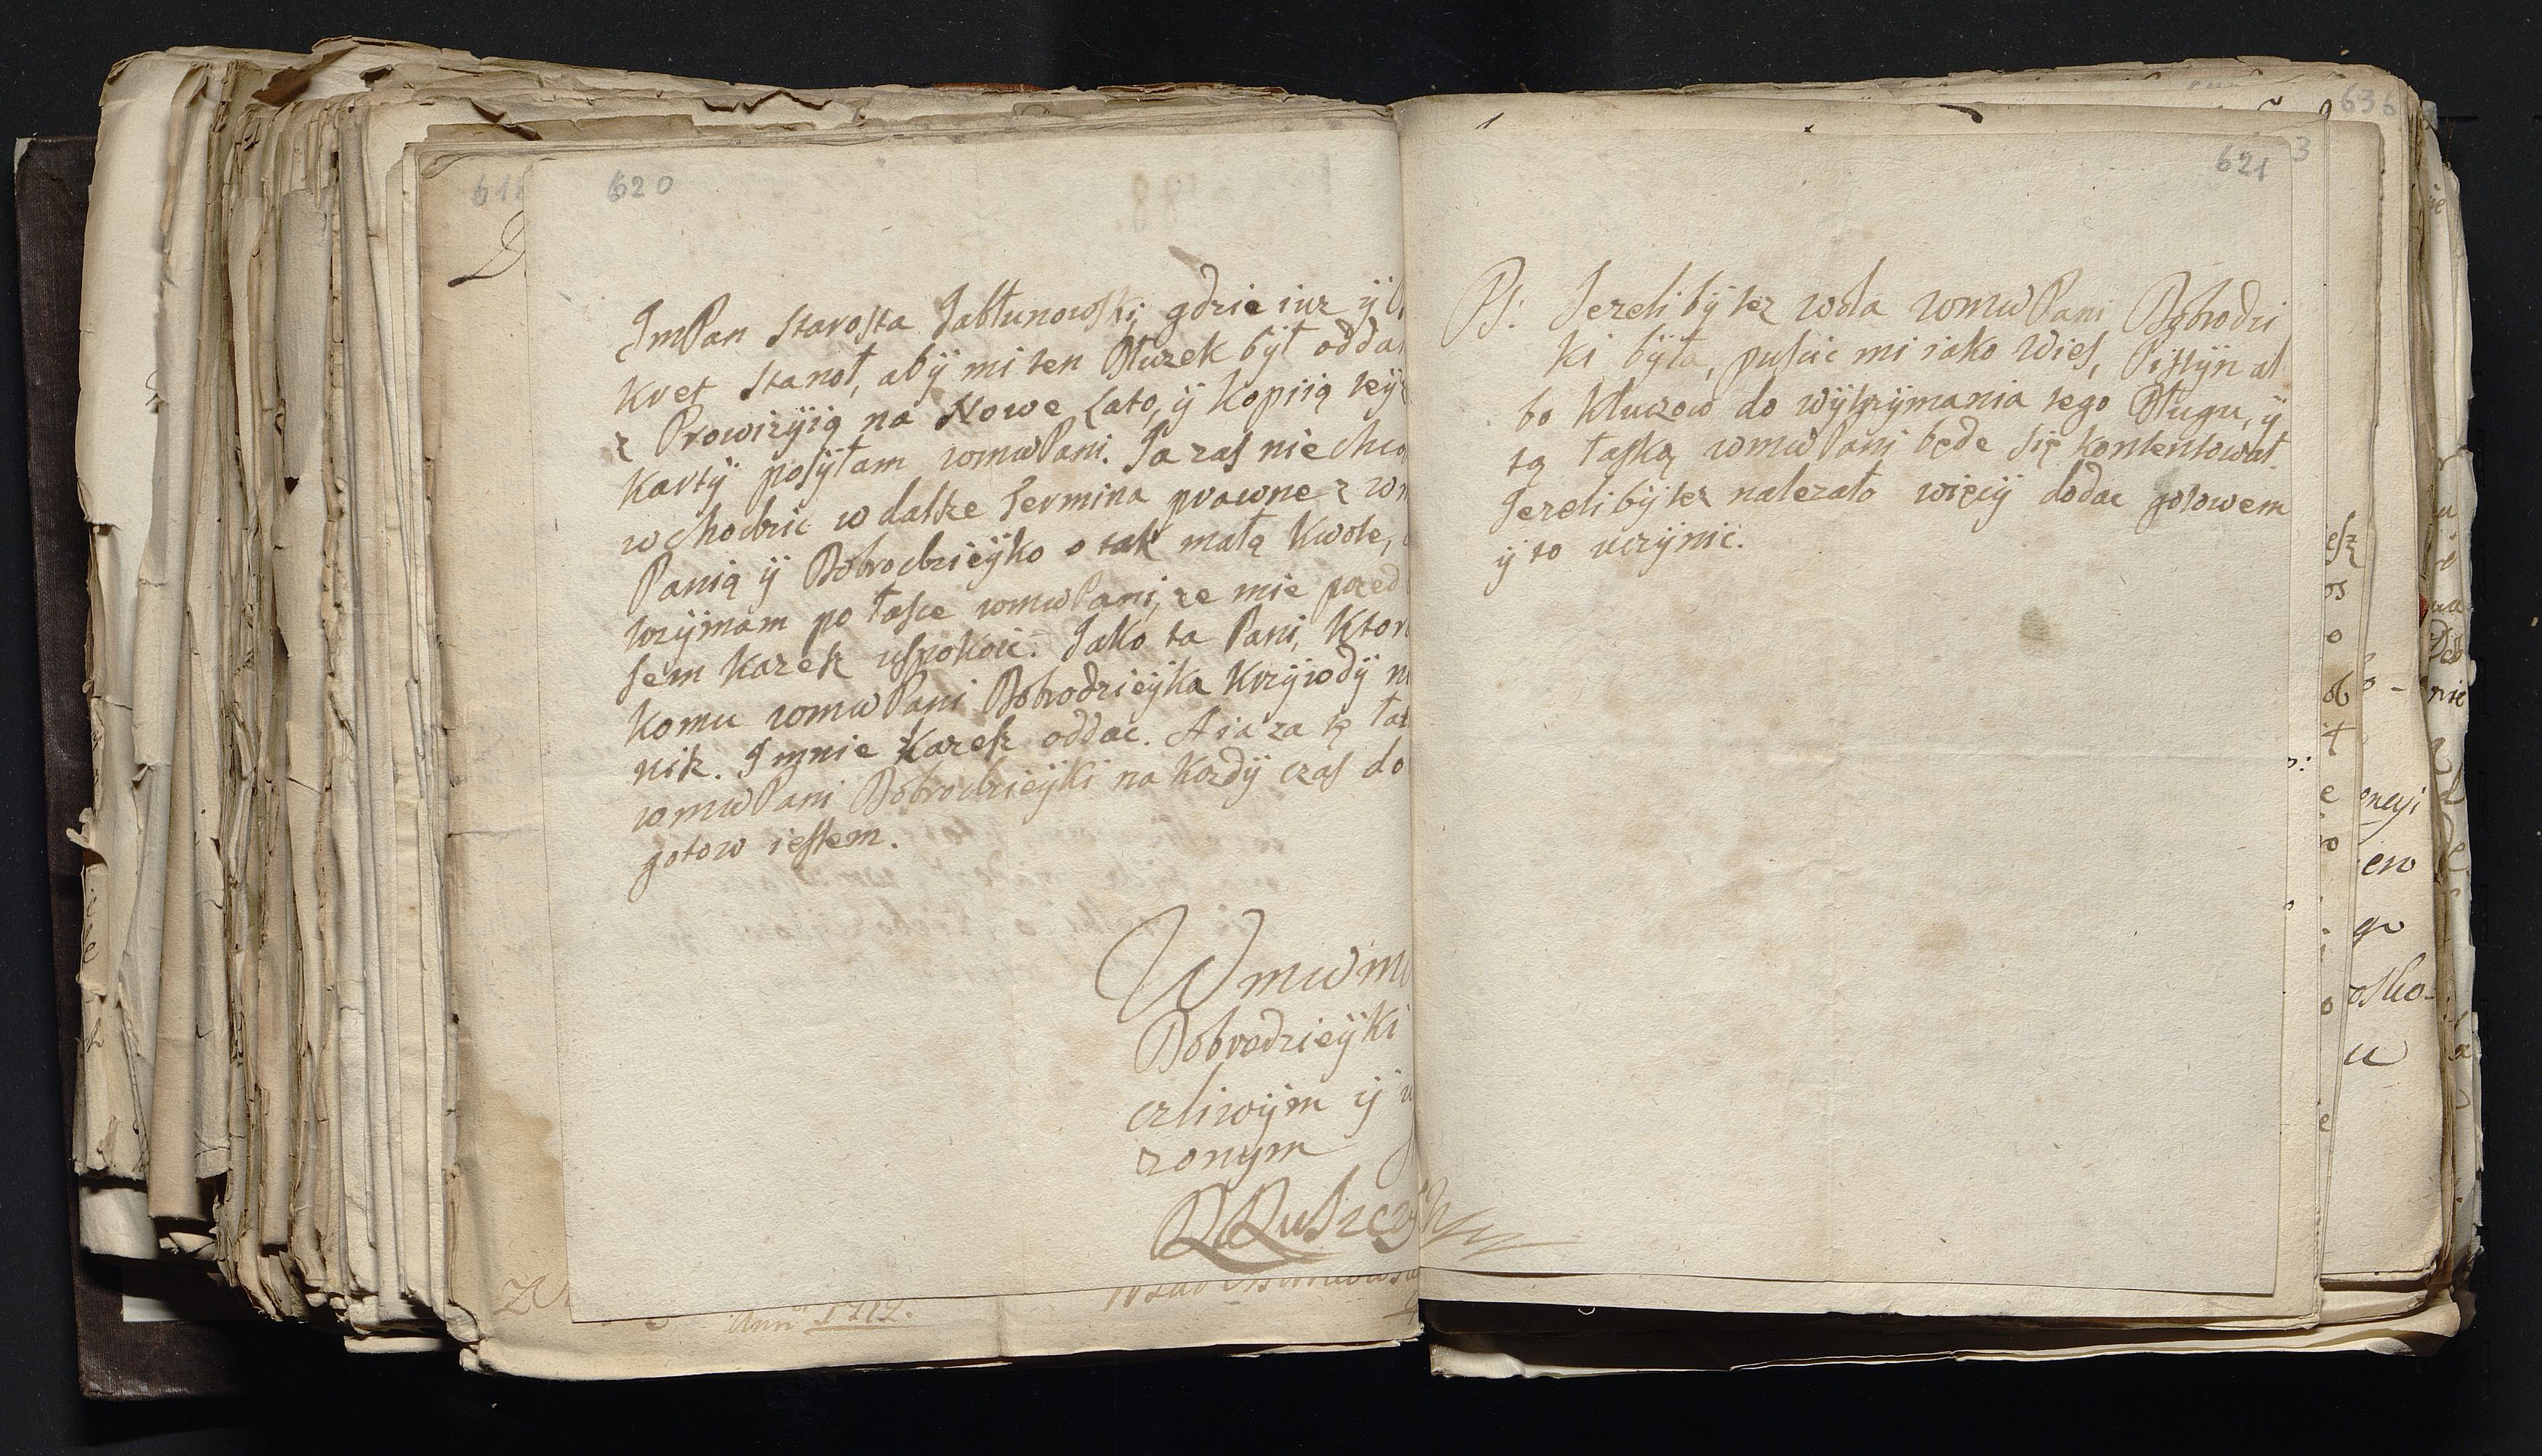 620
ImPan Starosta Jabłunowski, gdzie iuz ÿ
kret stanoł, abÿ mi ten Dłuzek bÿł odda
z Prowizÿią na Nowe Lato, ÿ kopiią teÿ
kartÿ posÿłam wmwPani. Ja zas nie chcą
wchodzic w dalsze termina prawne z
Panią ÿ Dobrodzieÿko o tak małą kwote,
trzÿmam po łasce wmwPani, ze mie przed
sem kazesz uspokoic. Jako ta Pani, ktor
komu wmwPani Dobrodzieÿka krzÿwdÿ
nisz. I mnie kazesz oddac. A ia za tę
wmwPani Dobrodzieÿki na kozdÿ czas do
gotow iestem.
Wmwm
Dobrodzieÿki
czliwÿm ÿ
zonym
Ann 1717.
621
Ps. Jezeli bÿ tez wola wmwPani Dobrodzi
ki bÿła, puscic mi iako wies, Pistÿn al
bo Kluczow do wÿtrzÿmania tego Długu, ÿ
tą łaską wmwPani będe się kontentował.
Jezeli bÿ tez nalezało więcÿ dodac gotowem
ÿ to uczÿnic.
3
636